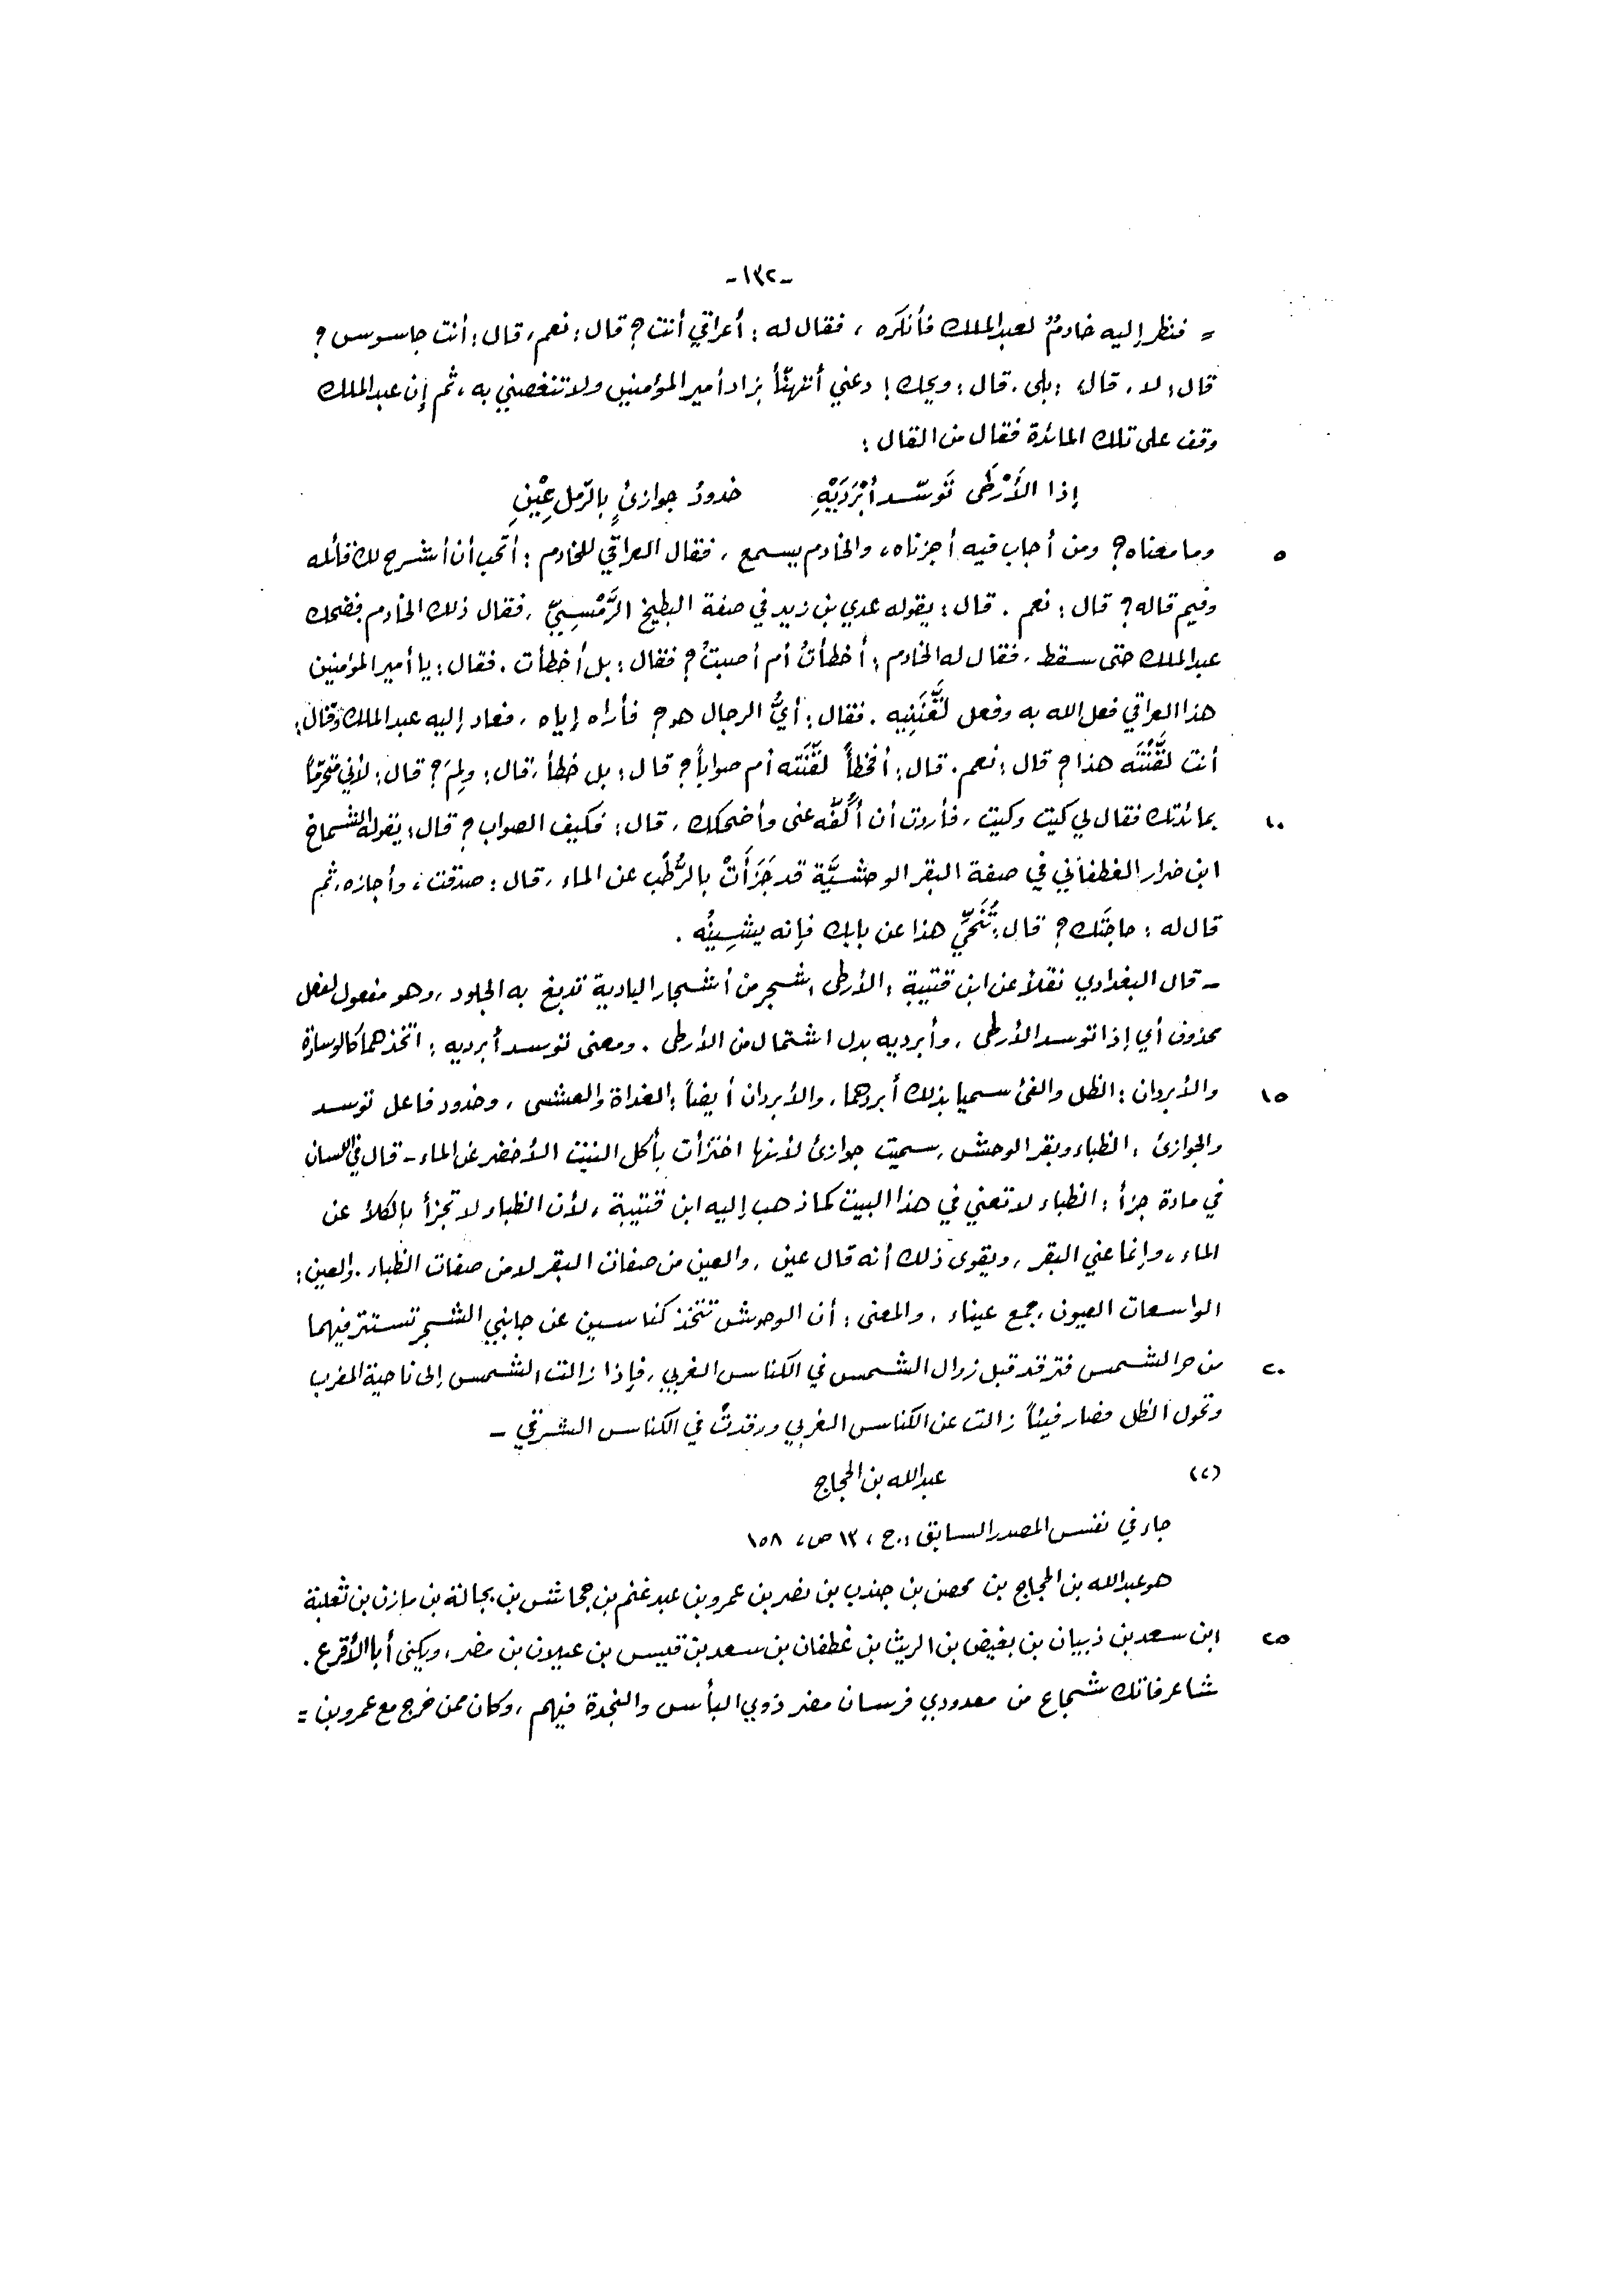 -١٣٢-
= فنظر إليه خادمٌ لعبدالملك فأنكره ، فقال له : أعراقي أنت ؟ قال : نعم ، قال : أنت جاسوس ؟
قال : لا ، قال : بلى . قال : ويحك ! دعني أتهنّأ بزاد أمير المؤمنين ولا تنغصني به ، ثم إن عبدالملك
وقف على تلك المائدة فقال من القائل :
إذا الأَرْطَى تَوسّد أَبْرَدَيْهِ خدودُ جوازئٍ بالرّمل عِيْنِ
٥ وما معناه ؟ ومن أجاب فيه أجزناه ، والخادم يسمع ، فقال العراقي للخادم : أتحب أن أشرح لك قائله
وفيم قاله ؟ قال : نعم . قال : يقوله عدي بن زيد في صفة البطيخ الرَّمْسِيّ ، فقال ذلك الخادم فضحك
عبدالملك حتى سقط ، فقال له الخادم : أخطأتُ أم أصبتُ ؟ فقال : بل أخطأت . فقال : يا أمير المؤمنين
هذا العراقي فعل الله به وفعل لَقَّنَنِيه . فقال : أيُّ الرجال هو ؟ فأراه إياه ، فعاد إليه عبدالملك وقال :
أنت لقَّنْتَه هذا ؟ قال : نعم . قال : أفخطأً لَقَّنْتَه أم صواباً ؟ قال : بل خطأ ، قال : ولِمَ ؟ قال : لأني متحرّماً
١٠ بمائدتك فقال لي كيت وكيت ، فأردت أن أكُفَّه عني وأضحكك ، قال : فكيف الصواب ؟ قال : يقوله الشماخ
ابن ضرار الغطفاني في صفة البقر الوحشيَّة قد جَزَأَتْ بالرُّطْب عن الماء ، قال : صدقت ، وأجازه ، ثم
قال له : حاجَتَك ؟ قال : تُنَحِّي هذا عن بابك فإنه يشِينُه .
- قال البغدادي نقلاً عن ابن قتيبة : الأرطى : شجر من أشجار البادية تدبغ به الجلود ، وهو مفعول لفعل
محذوف أي إذا توسد الأرطى ، وأبرديه بدل اشتمال من الأرطى . ومعنى توسد أبرديه : اتخذهما كالوسادة
١٥ والأبردان : الظل والفئ سميا بذلك أبردهما ، والأبردان أيضاً : الغداة والعشى ، وخدود فاعل توسد
والجوازئ : الظباء وبقر الوحش ، سميت جوازئ لأنها اجتزأت بأكل النبت الأخضر عن الماء - قال في اللسان
في مادة جزأ : الظباء لا تعني في هذا البيت كما ذهب إليه ابن قتيبة ، لأن الظباء لا تجزأ بالكلأ عن
الماء ، وإنما عني البقر ، ويقوى ذلك أنه قال عين ، والعين من صفات البقر لا من صفات الظباء . والعين :
الواسعات العيون ، جمع عيناء . والمعنى : أن الوحوش تتخذ كناسين عن جانبي الشجر تستتر فيهما
٢٠ من حر الشمس فترقد قبل زوال الشمس في الكناس الغربي ، فإذا زالت الشمس إلى ناحية المغرب
وتحول الظل فصار فيئاً زالت عن الكناس الغربي ورقدتْ في الكناس الشرقي -
(٢) عبدالله بن الحجاج
جاء في نفس المصدر السابق ، ج ، ١٣ ص ، ١٥٨
هو عبدالله بن الحجاج بن محصن بن جندب بن نصر بن عمرو بن عبد غنم بن جحاش بن بجالة بن مازن بن ثعلبة
٢٥ ابن سعد بن ذبيان بن بغيض بن الريث بن غطفان بن سعد بن قيس بن عيلان بن مضر ، ويكنى أبا الأقرع .
شاعر فاتك شجاع من معدودي فرسان مضر ذوي البأس والنجدة فيهم ، وكان ممن خرج مع عمرو بن =